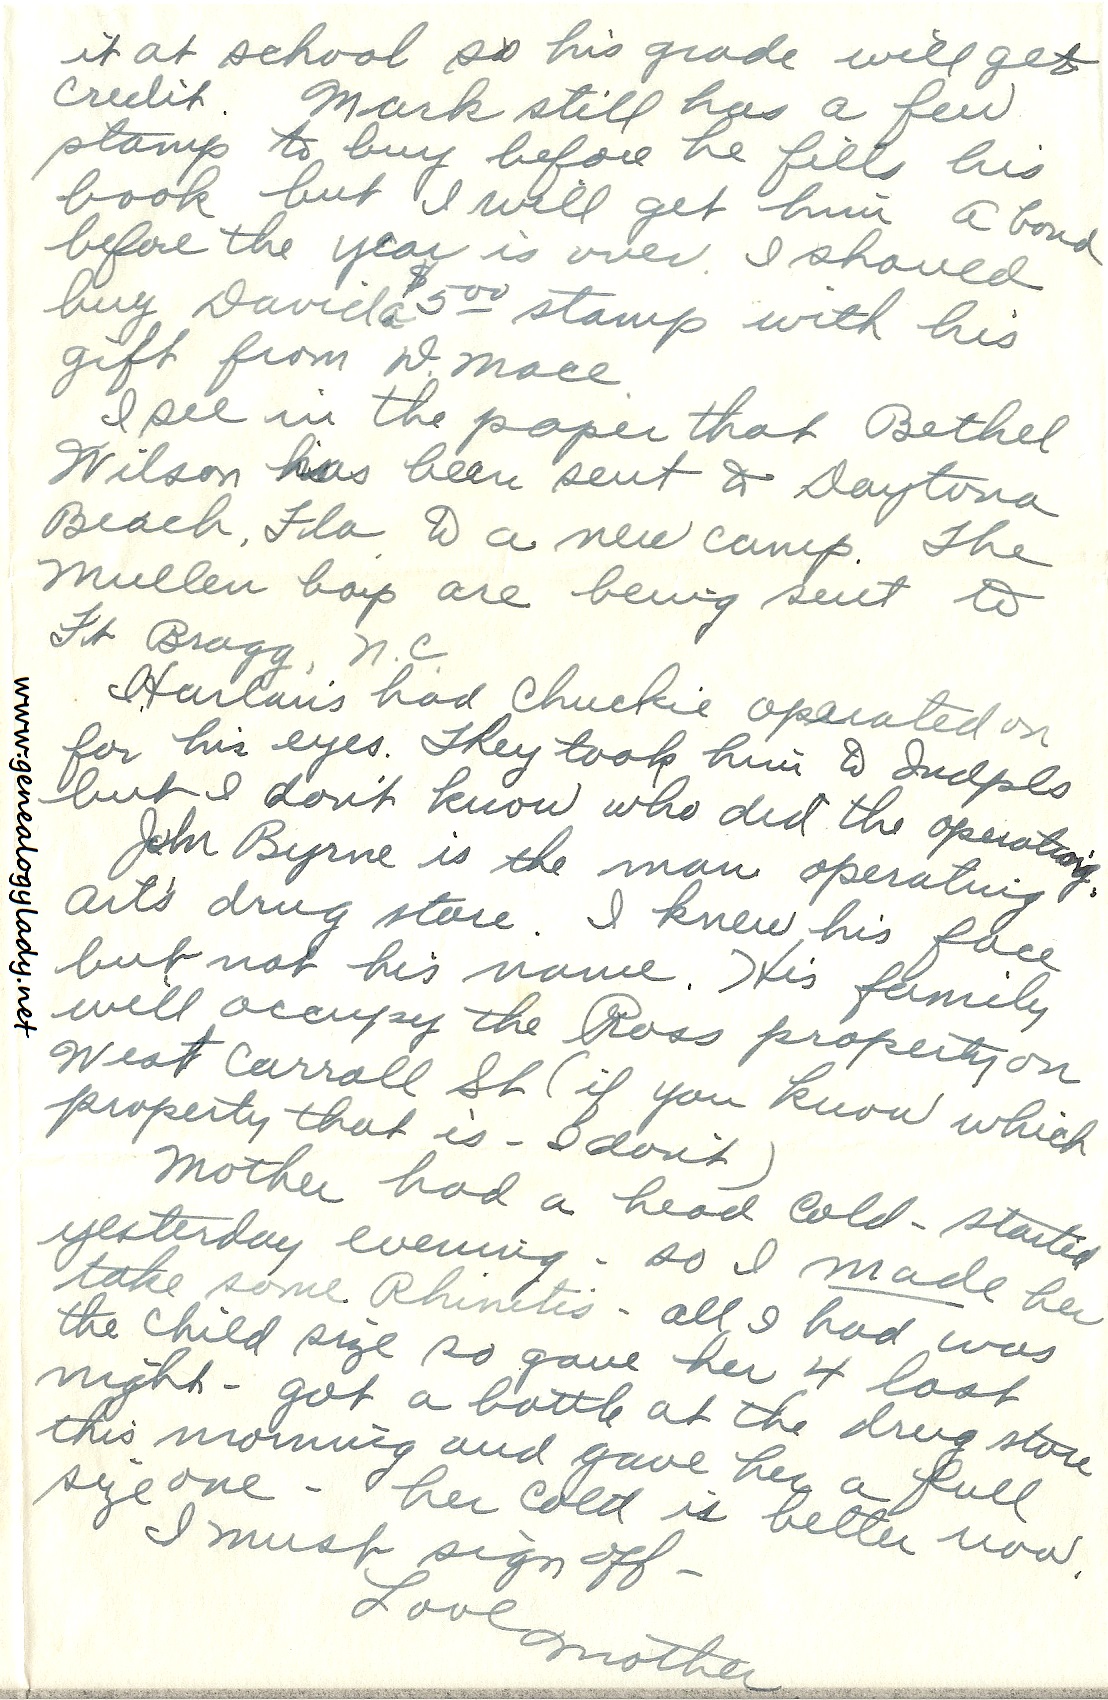 it at school so his grade will get
credit. Mark still has a few
stamp to buy before he fills his
book but I will get him a bond
before the year is over. I should
buy David a $5.00 stamp with his
gift from D. Mace.
I see in the paper that Bethel
Wilson has been sent to Daytona
Beach, Fla to a new camp. The
Mullen boys are being sent to
Ft Bragg, N.C.
Harlan's had Chuckie operated on
for his eyes. They took him to Indpls
but I don't know who did the operating.
John Byrne is the man operating
Art's drug store. I knew his face
but not his name. His family
will occupy the Ross property on
West Carroll St (if you know which
property that is - I don't)
Mother had a head cold - started
yesterday evening - so I made her
take some Rhinitis - all I had was
the child size so gave her 4 last
night - got a bottle at the drug store
this morning and gave her a full
size one - her cold is better now.
I must sign off -
Love
Mother
www.genealogylady.net